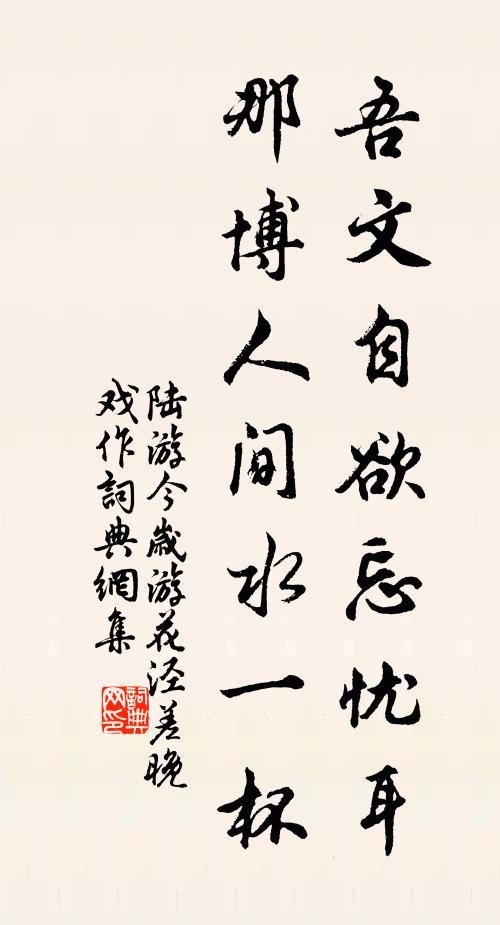 吾文自欲忘忧耳
那博人间水一杯
陆游今岁游花泾差晚
戏作詞典網集
詞典网印